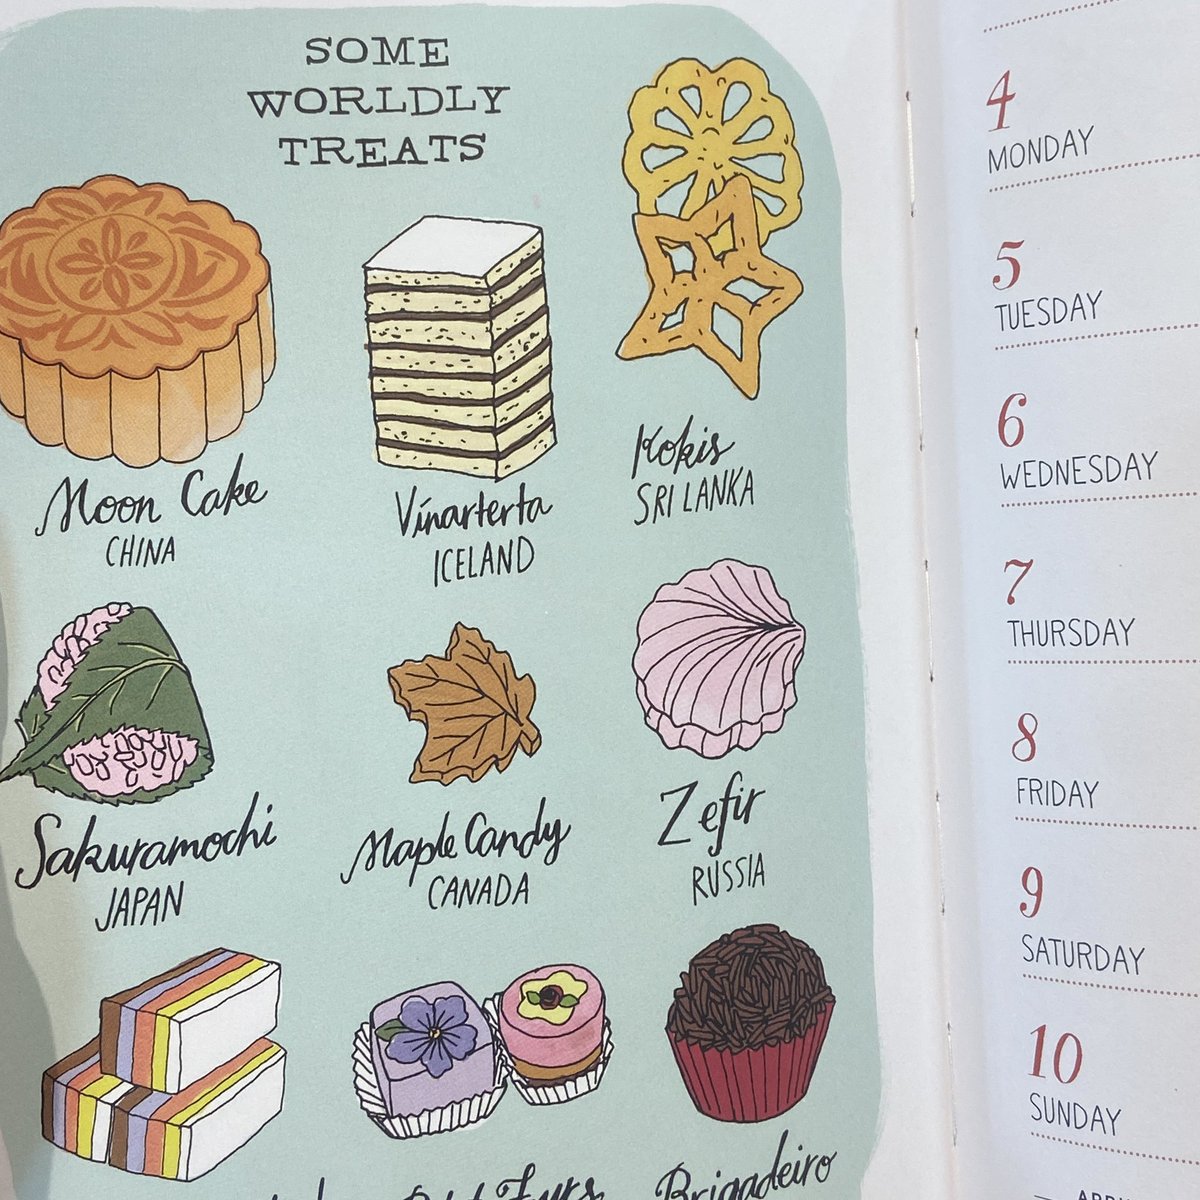 SOME
WORLDLY
TREATS
Moon Cake
CHINA
Vínarterta
ICELAND
Kokis
SRI LANKA
Sakuramochi
JAPAN
Maple Candy
CANADA
Zefir
RUSSIA
Brigadeiro
4
MONDAY
5
TUESDAY
6
WEDNESDAY
7
THURSDAY
8
FRIDAY
9
SATURDAY
10
SUNDAY